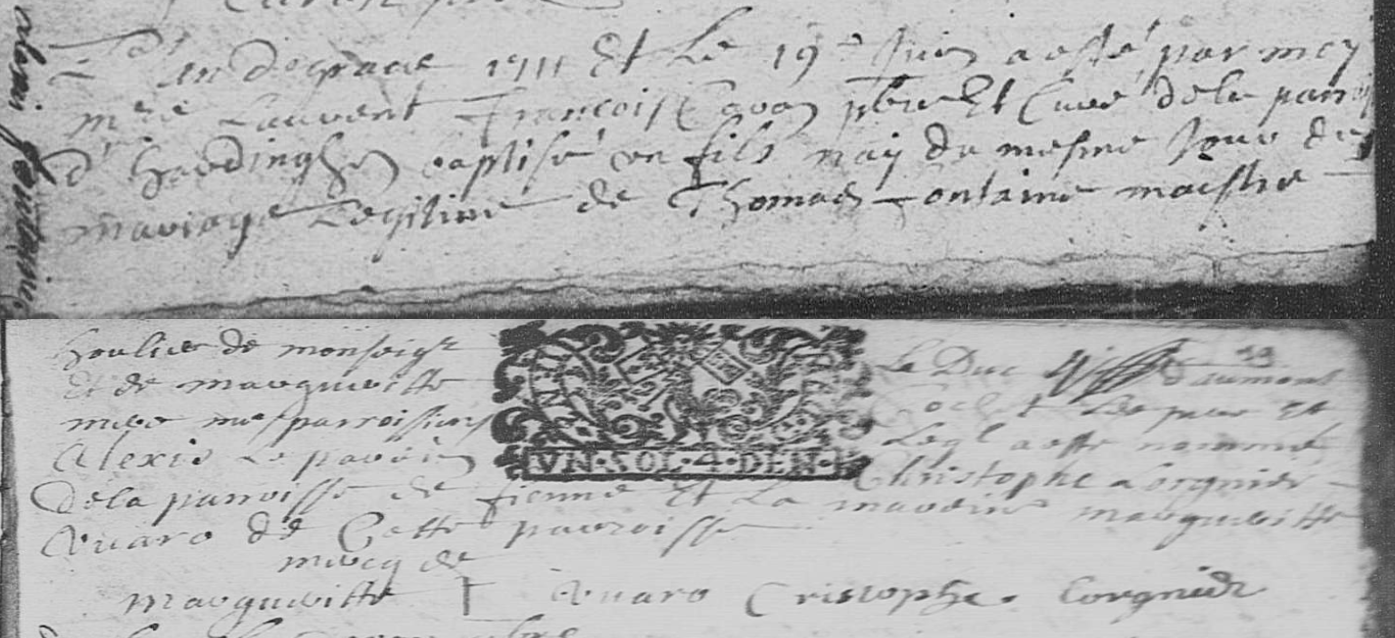 L'an de grace 1711 Et Le 19e Juin a esté par moy
mre Laurent François Cavon pbre Et Curé de la paroi
d'hardinghen baptisé un fils nay du mesme Jour de
mariage Legitime de Thomas fontaine maistre
alexis fontaine
houlier de monseigr Le Duc d'aumont
Et de marguerite Les pere Et
mere mes parroissiens Lequel a esté nommé
Alexis Le parein Christophe Lorgnier
de la parroisse de fienne Et La mareine marguerite
Evraro de Cette parroisse
mercq de
marguerite Evraro Cristophe Lorgnier
VN·SOL·4·DEN·
19